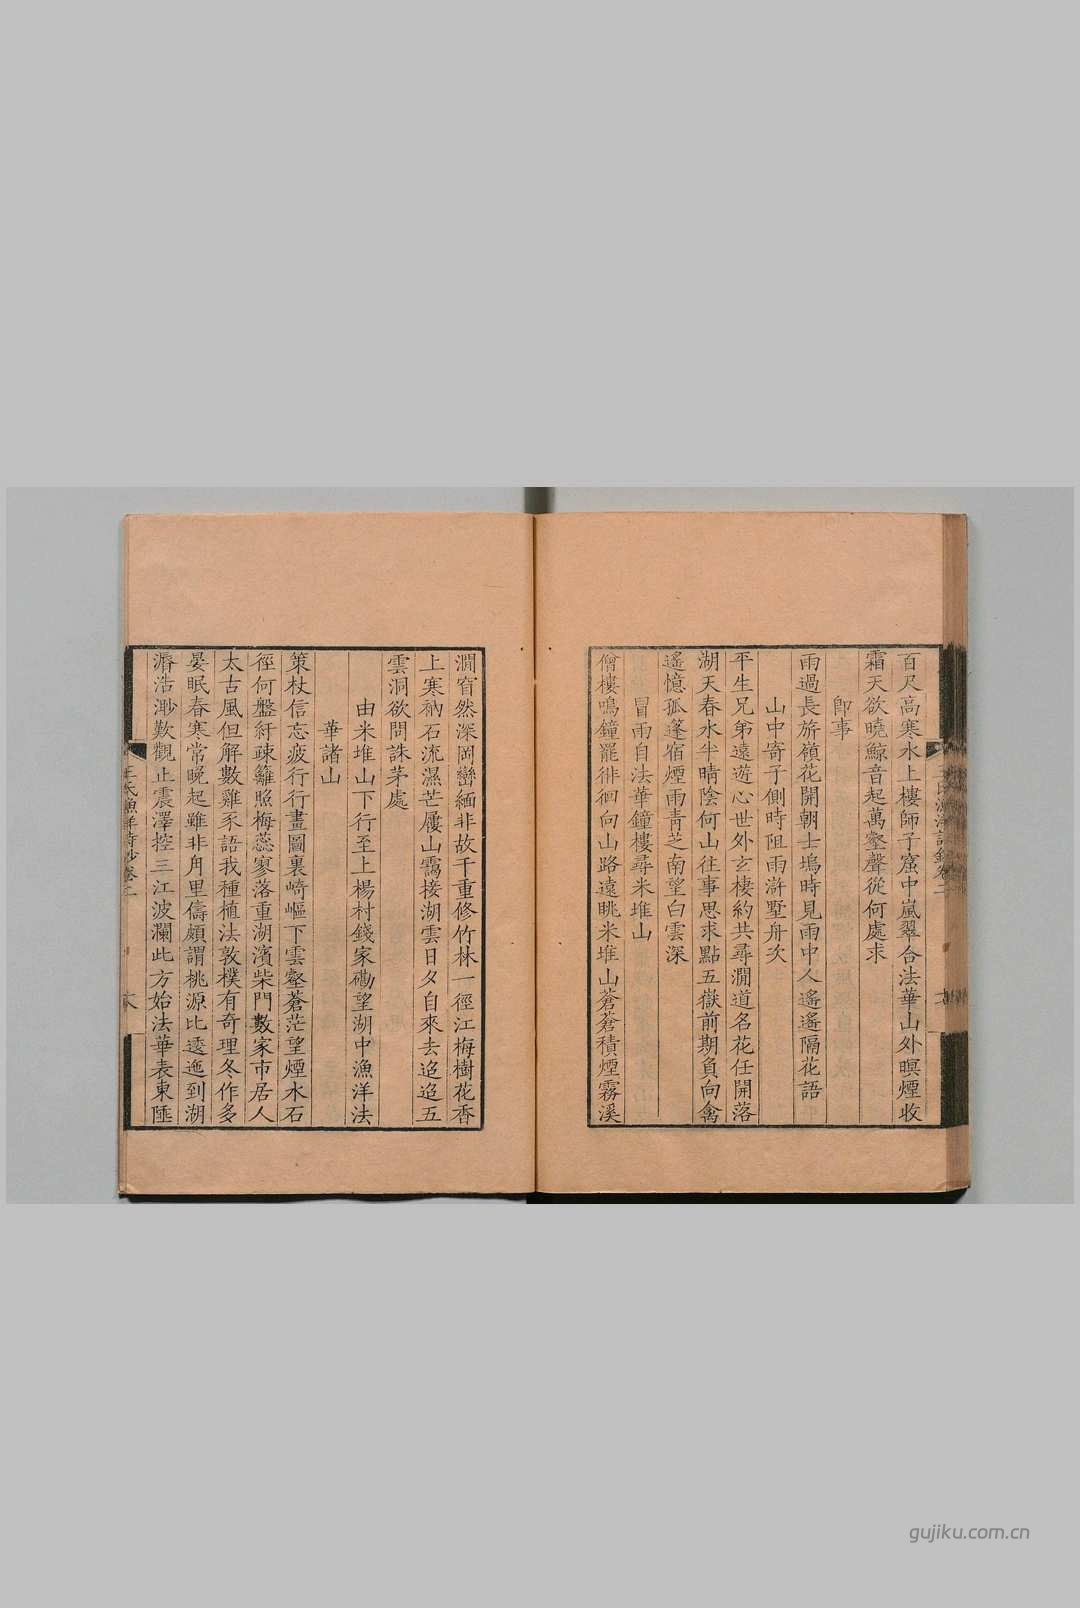 百尺高寒水上樓師子窟中嵐翠合法華山外暝煙收
霜天欲曉鯨音起萬壑聲從何處求
即事
雨過長旂嶺花開朝士塢時見雨中人遙遙隔花語
山中寄子側時阻雨滸墅舟次
平生兄弟遠遊心世外玄棲約共尋澗道名花任開落
湖天春水半晴陰何山往事思求點五嶽前期負向禽
遙憶孤篷宿煙雨青芝南望白雲深
冒雨自法華鐘樓尋米堆山
僧樓鳴鐘罷徘徊向山路遠眺米堆山蒼蒼積煙霧溪
澗窅然深岡巒緬非故千重修竹林一徑江梅樹花香
上寒衲石流濕芒屨山靄接湖雲日夕自來去迢迢五
雲洞欲問誅茅處
由米堆山下行至上楊村錢家磡望湖中漁洋法
華諸山
策杖信忘疲行行畫圖裏崎嶇下雲壑蒼茫望煙水石
徑何盤紆疎籬照梅蕊寥落重湖濱柴門數家市居人
太古風但解數雞豕語我種植法敦樸有奇理冬作多
晏眠春寒常晚起雖非甪里儔頗謂桃源比逶迤到湖
漘浩渺歎觀止震澤控三江波瀾此方始法華表東陲
王氏漁洋詩鈔卷二
gujiku.com.cn